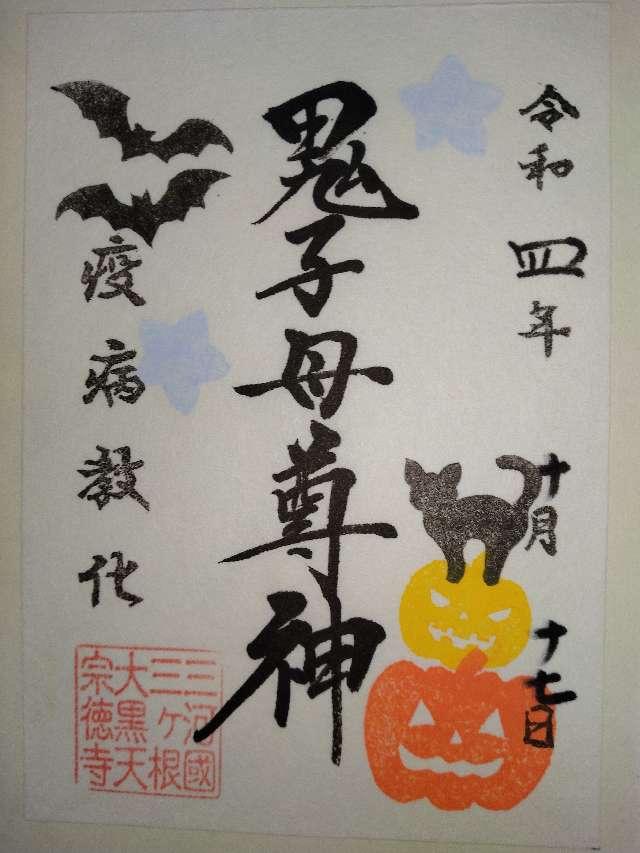 令和四年十月十七日
鬼子母尊神
疫病教化
三河國
三ヶ根
大黒天
宗徳寺